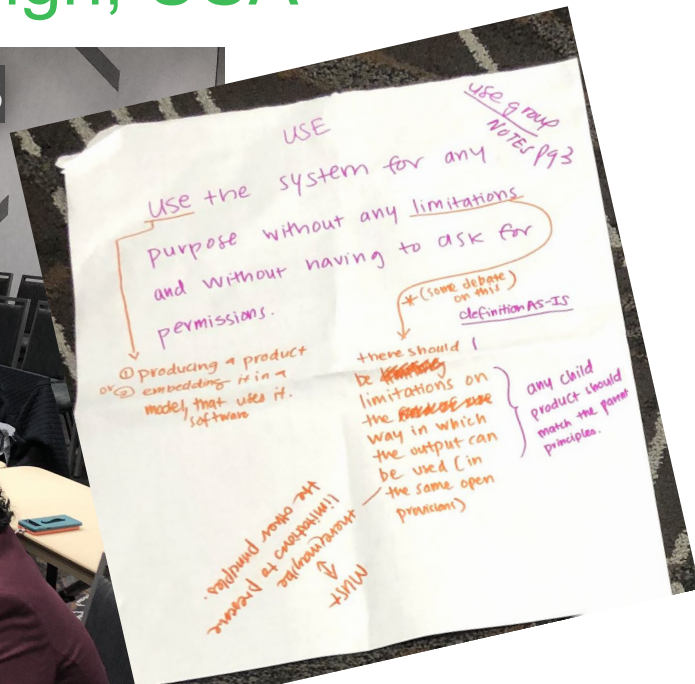 gn, USA
use group
NOTES pg3
USE
use the system for any
purpose without any limitations
and without having to ask for
permissions.
① producing a product
or ② embedding it in a
model, that uses it.
software
* (some debate)
on this
definition AS-IS
there should
be
limitations on
the
way in which
the output can
be used (in
the same open
provisions)
any child
product should
match the parent
principles.
MUST
there may be
limitations to preserve
the other principles.